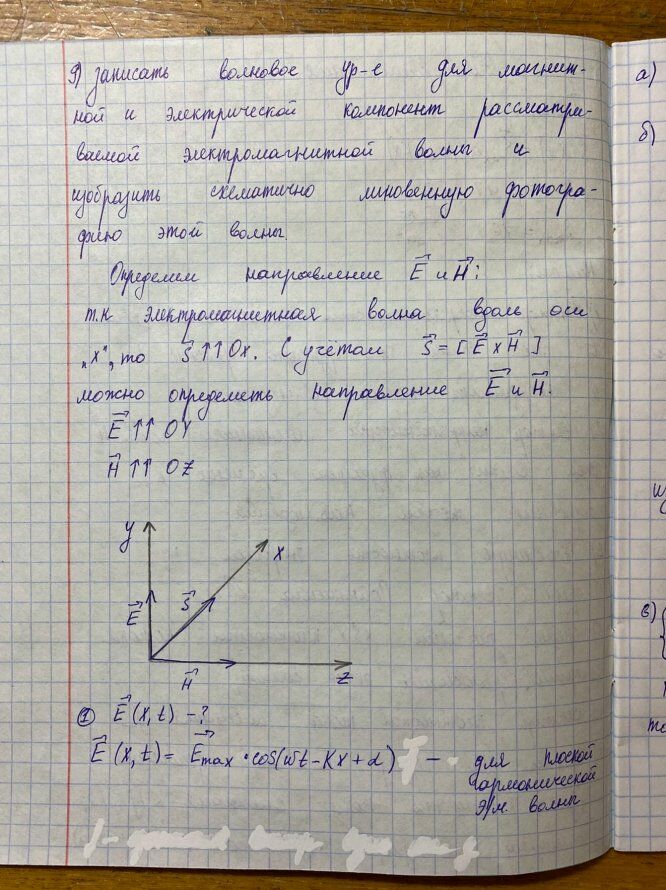 9) Записать волновое ур-е для магнит-
ной и электрической компонент рассматри-
ваемой электромагнитной волны и
изобразить схематично мгновенную фотогра-
фию этой волны.
Определим направление E⃗ и H⃗:
т.к электромагнитная волна вдоль оси
„x", то S⃗ ↑↑ Ox. С учетом S⃗ = [E⃗ x H⃗]
можно определеть направление E⃗ и H⃗.
E⃗ ↑↑ OY
H⃗ ↑↑ OZ
y
x
E⃗
S⃗
H⃗
z
① E⃗(x,t) - ?
E⃗(x,t) = E⃗max · cos(ωt - Kx + α) — для плоской
гармонической
э/м. волны
а)
б)
в)